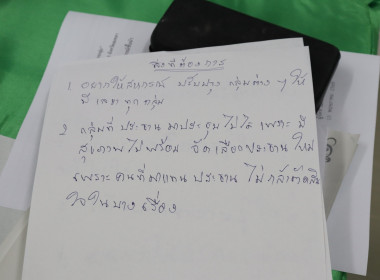 สิ่งที่ต้องการ
1 อยากให้สหกรณ์ ปรับปรุง กลุ่มต่าง ๆ ให้
มี เลขา ทุก กลุ่ม
2 กลุ่มที่ ประธาน มาประชุมไม่ได้ เพราะ มี
สุขภาพไม่พร้อม จัดเลือกประธาน ใหม่
เพราะ คนที่มาแทน ประธาน ไม่กล้าตัดสิน
ใจในบางเรื่อง